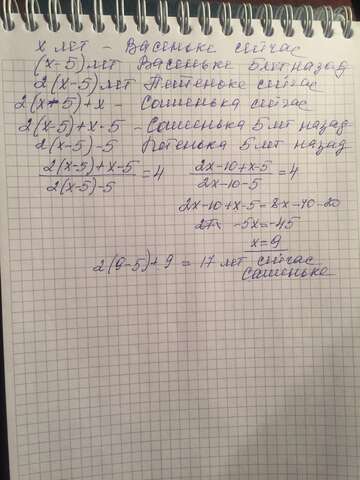 x лет - Васеньке сейчас
(x-5) лет Васеньке 5 лет назад
2(x-5) лет Петеньке сейчас
2(x-5)+x - Сашенька сейчас
2(x-5)+x-5 - Сашенька 5 лет назад
2(x-5)-5 Петенька 5 лет назад
2(x-5)+x-5 / 2(x-5)-5 = 4    2x-10+x-5 / 2x-10-5 = 4
2x-10+x-5=8x-40-20
-5x=-45
x=9
2(9-5)+9 = 17 лет сейчас
Сашеньке